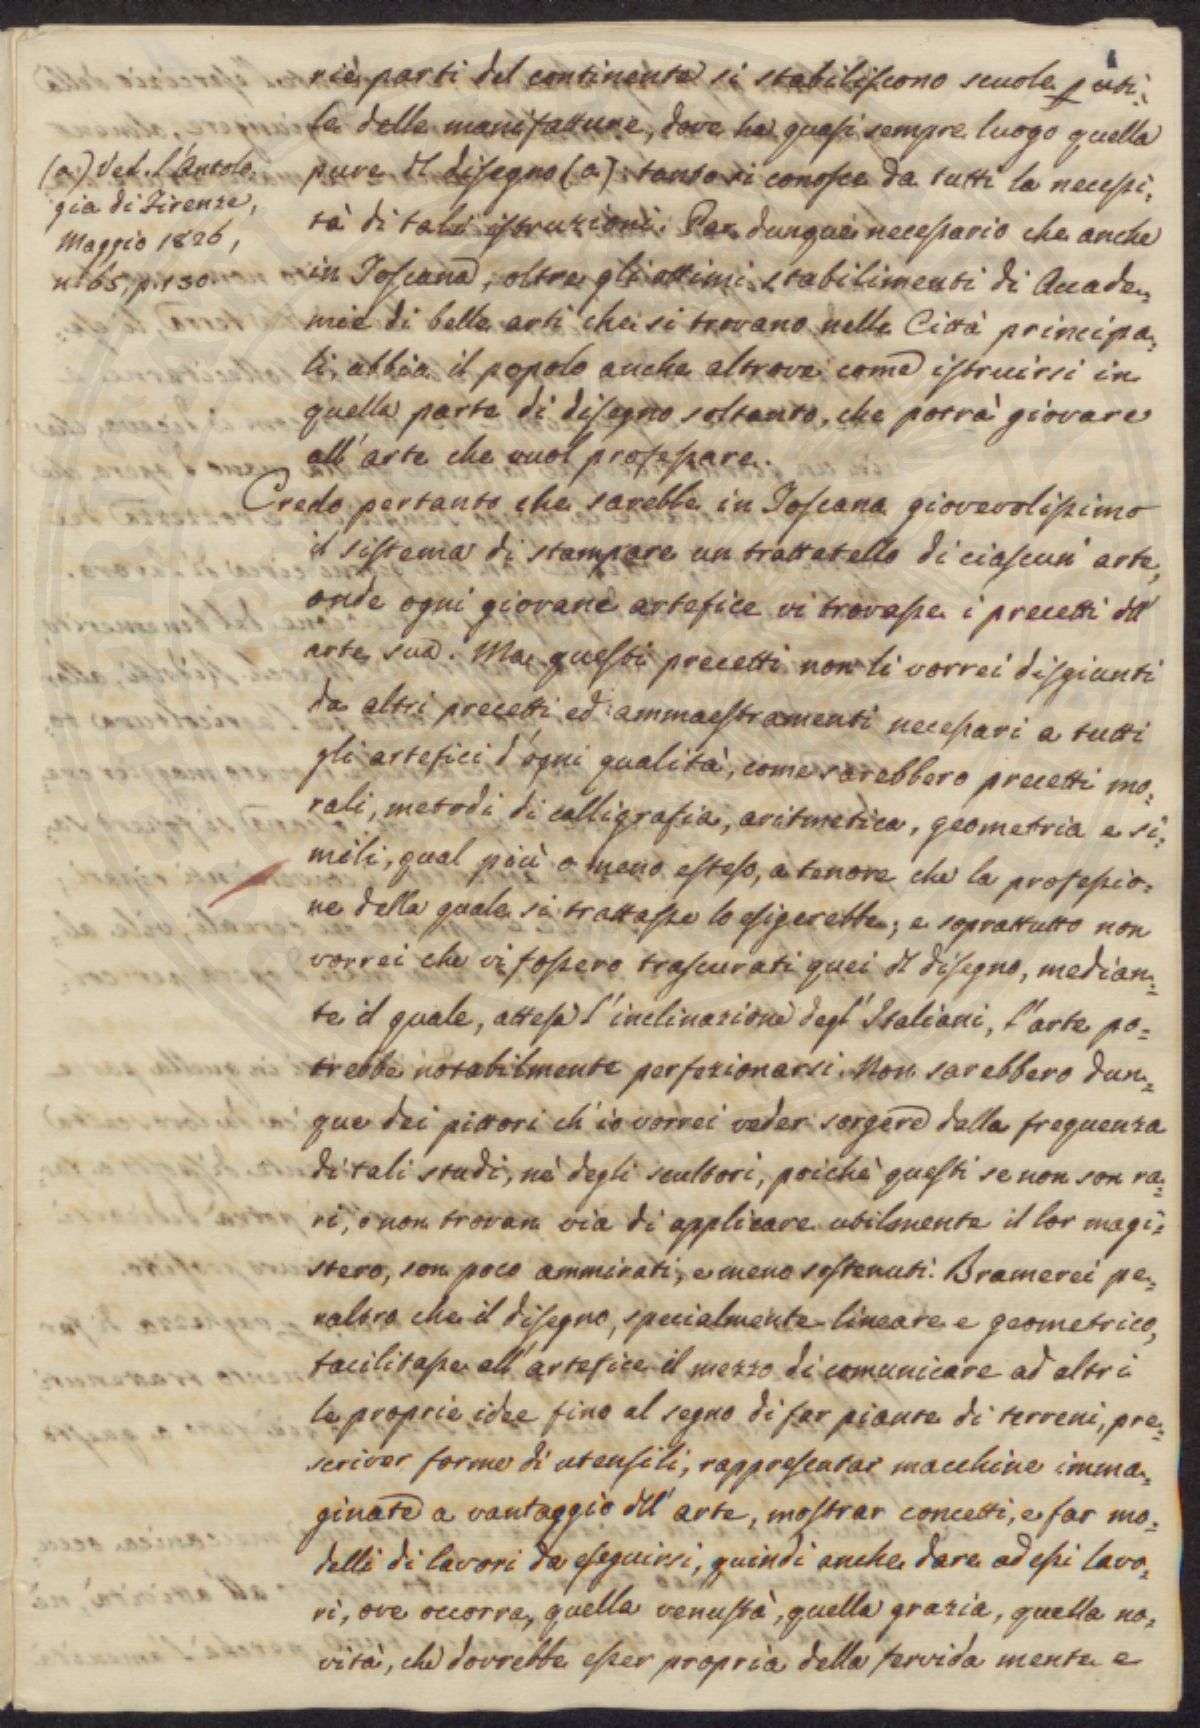 rie parti del continente si stabiliscono scuole p uti=
le delle manifatture, dove ha quasi sempre luogo quella
pure dl disegno (a): tanto si conosce da tutti la necessi=
tà di tali istruzioni. Par dunque necessario che anche
in Toscana, oltre gli ottimi stabilimenti di Accade=
mie di belle arti che si trovano nelle Città principa=
li, abbia il popolo anche altrove come istruirsi in
quella parte di disegno soltanto, che potrà giovare
all'arte che vuol professare.
(a) Ved. l'Antolo
gia di Firenze,
Maggio 1826,
n.° 65, p. 130
Credo pertanto che sarebbe in Toscana giovevolissimo
il sistema di stampare un trattatello di ciascun' arte,
onde ogni giovane artefice vi trovasse i precetti dll'
arte sua. Ma questi precetti non li vorrei disgiunti
da altri precetti ed ammaestramenti necessari a tutti
gli artefici d'ogni qualità, come sarebbero precetti mo=
rali, metodi di calligrafia, aritmetica, geometria e si=
mili, qual più o meno esteso, a tenore che la professio=
ne della quale si trattasse lo esigerebbe; e soprattutto non
vorrei che vi fossero trascurati quei dl disegno, median=
te il quale, attesa l'inclinazione degl' Italiani, l'arte po=
trebbe notabilmente perfezionarsi. Non sarebbero dun=
que dei pittori ch' io vorrei veder sorgere dalla frequenza
di tali studi, nè degli scultori, poichè questi se non son ra=
ri, o non trovan via di applicare utilmente il lor magi=
stero, son poco ammirati, e meno sostenuti. Bramerei pe=
raltro che il disegno, specialmente lineare e geometrico,
facilitasse all' artefice il mezzo di comunicare ad altri
le proprie idee fino al segno di far piante di terreni, pre=
scriver forme di utensili, rappresentar macchine imma=
ginate a vantaggio dll' arte, mostrar concetti, e far mo=
delli di lavori da eseguirsi, quindi anche dare ad essi lavo=
ri, ove occorra, quella venustà, quella grazia, quella no=
vità, che dovrebbe esser propria della fervida mente e